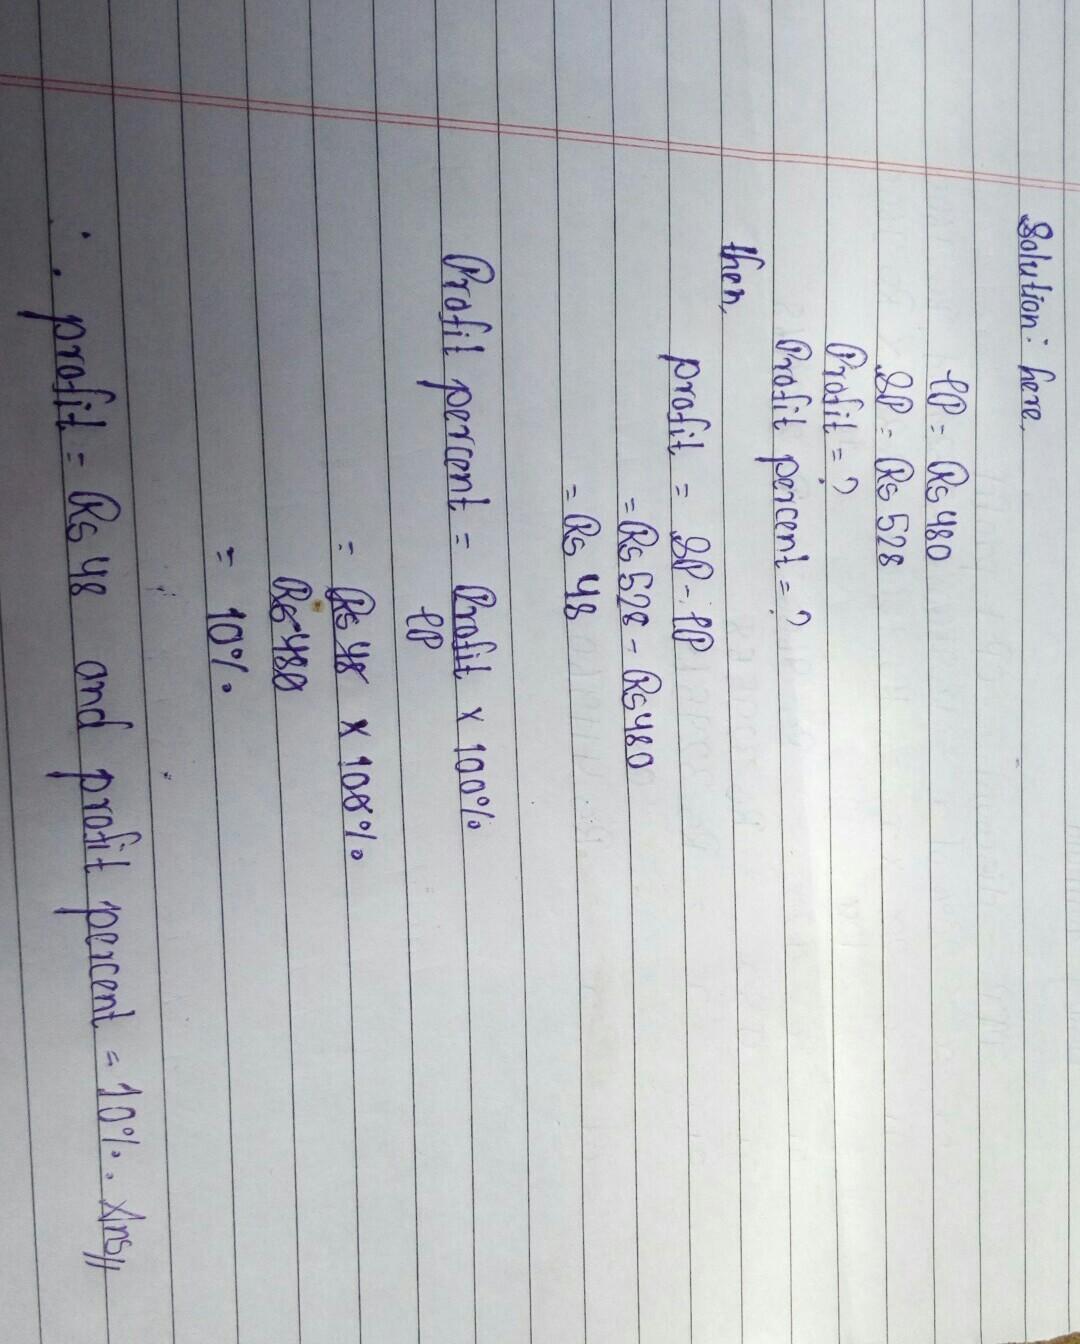 Solution: here,
CP = Rs 480
SP = Rs 528
Profit = ?
Profit percent = ?
then,
profit = SP - CP
= Rs 528 - Rs 480
= Rs 48
Profit percent = Profit × 100%
CP
= Rs 48 × 100%
Rs 480
= 10%
∴ profit = Rs 48 and profit percent = 10%. Ans//